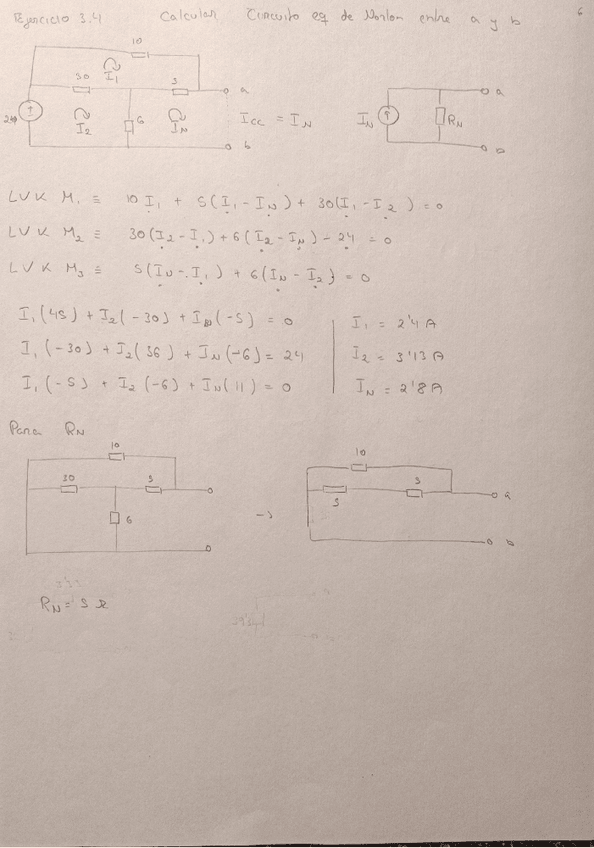 Ejercicio 3.4 Calcular Circuito eq de Norton entre a y b
6
10
I₁
30 5 a
I₂ 6 I_N b
I_CC = I_N
I_N R_N a
LVK M₁ ≡ 10 I₁ + 5(I₁ - I_N) + 30(I₁ - I₂) = 0
LVK M₂ ≡ 30(I₂ - I₁) + 6(I₂ - I_N) - 24 = 0
LVK M₃ ≡ 5(I_N - I₁) + 6(I_N - I₂) = 0
I₁(45) + I₂(-30) + I_N(-5) = 0
I₁(-30) + I₂(36) + I_N(-6) = 24
I₁(-5) + I₂(-6) + I_N(11) = 0
I₁ = 2'4 A
I₂ = 3'13 A
I_N = 2'8 A
Para R_N
10
30 5
6
→
10
5 5 a
b
R_N = 5 Ω